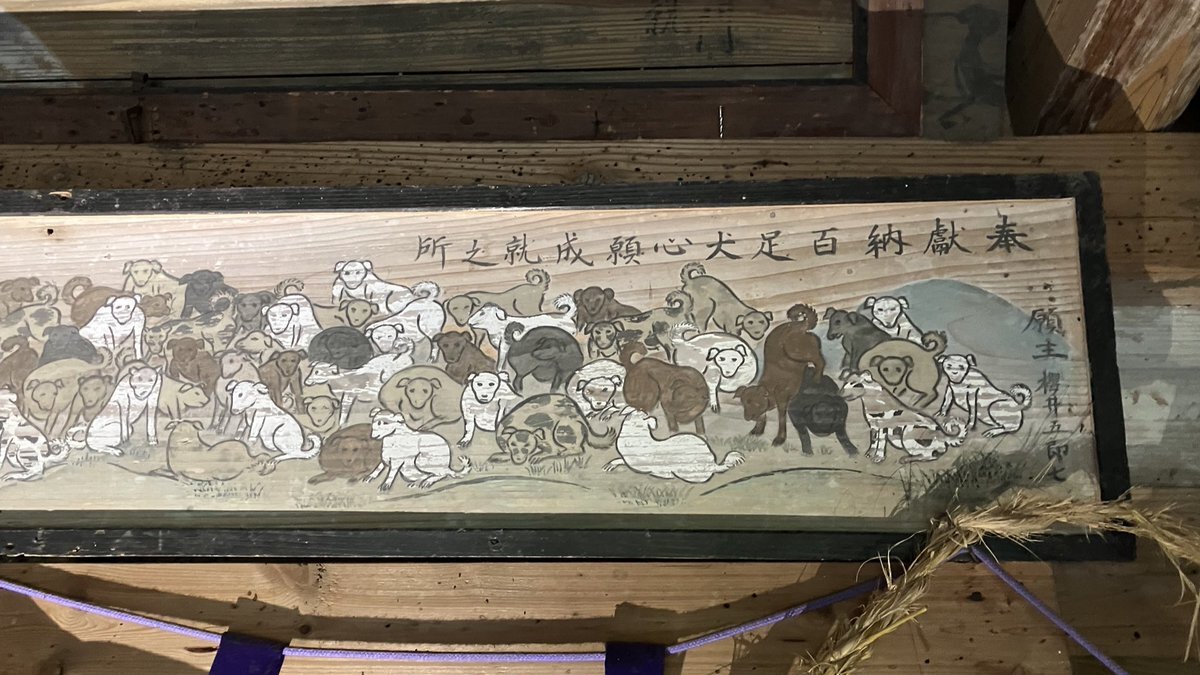 奉獻納百足犬心願成就之所
願主 櫻井五郎七